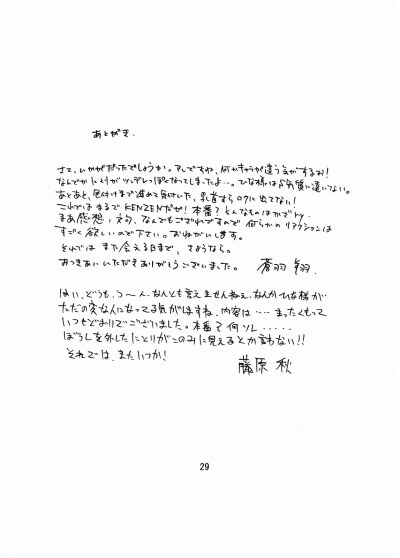 あとがき.
さて、いかがだったでしょうか。アレですね、何かキャラが違う気がするお!
なんでかにとりがツンデレっぽくなってしまったよ…。ひな様はS気質に違いない。
あとあと、色付けまで進めて気付いた、乳首すらロクに出てない!
これではまるでKENZENだぜ! 本番? そんなものはかざりy.
まあ感想、ネタ、なんでもござれですので何らかのリアクションは
すごく欲しいので下さい。おねがいします。
それでは また会える日まで、さようなら。
おつきあいいただきありがとうございました。 蒼羽
はい、どうも、う〜ん、なんとも言えませんねぇ、なんかひな様が
ただの変な人になってる気がしますね、内容は…. まったくもって
いつもどおりでございました。本番?何ソレ・・・・・
ぼうしを外したにとりがこのみに見えるとか言わない!!
それでは、またいつか!
藤原 秋
29